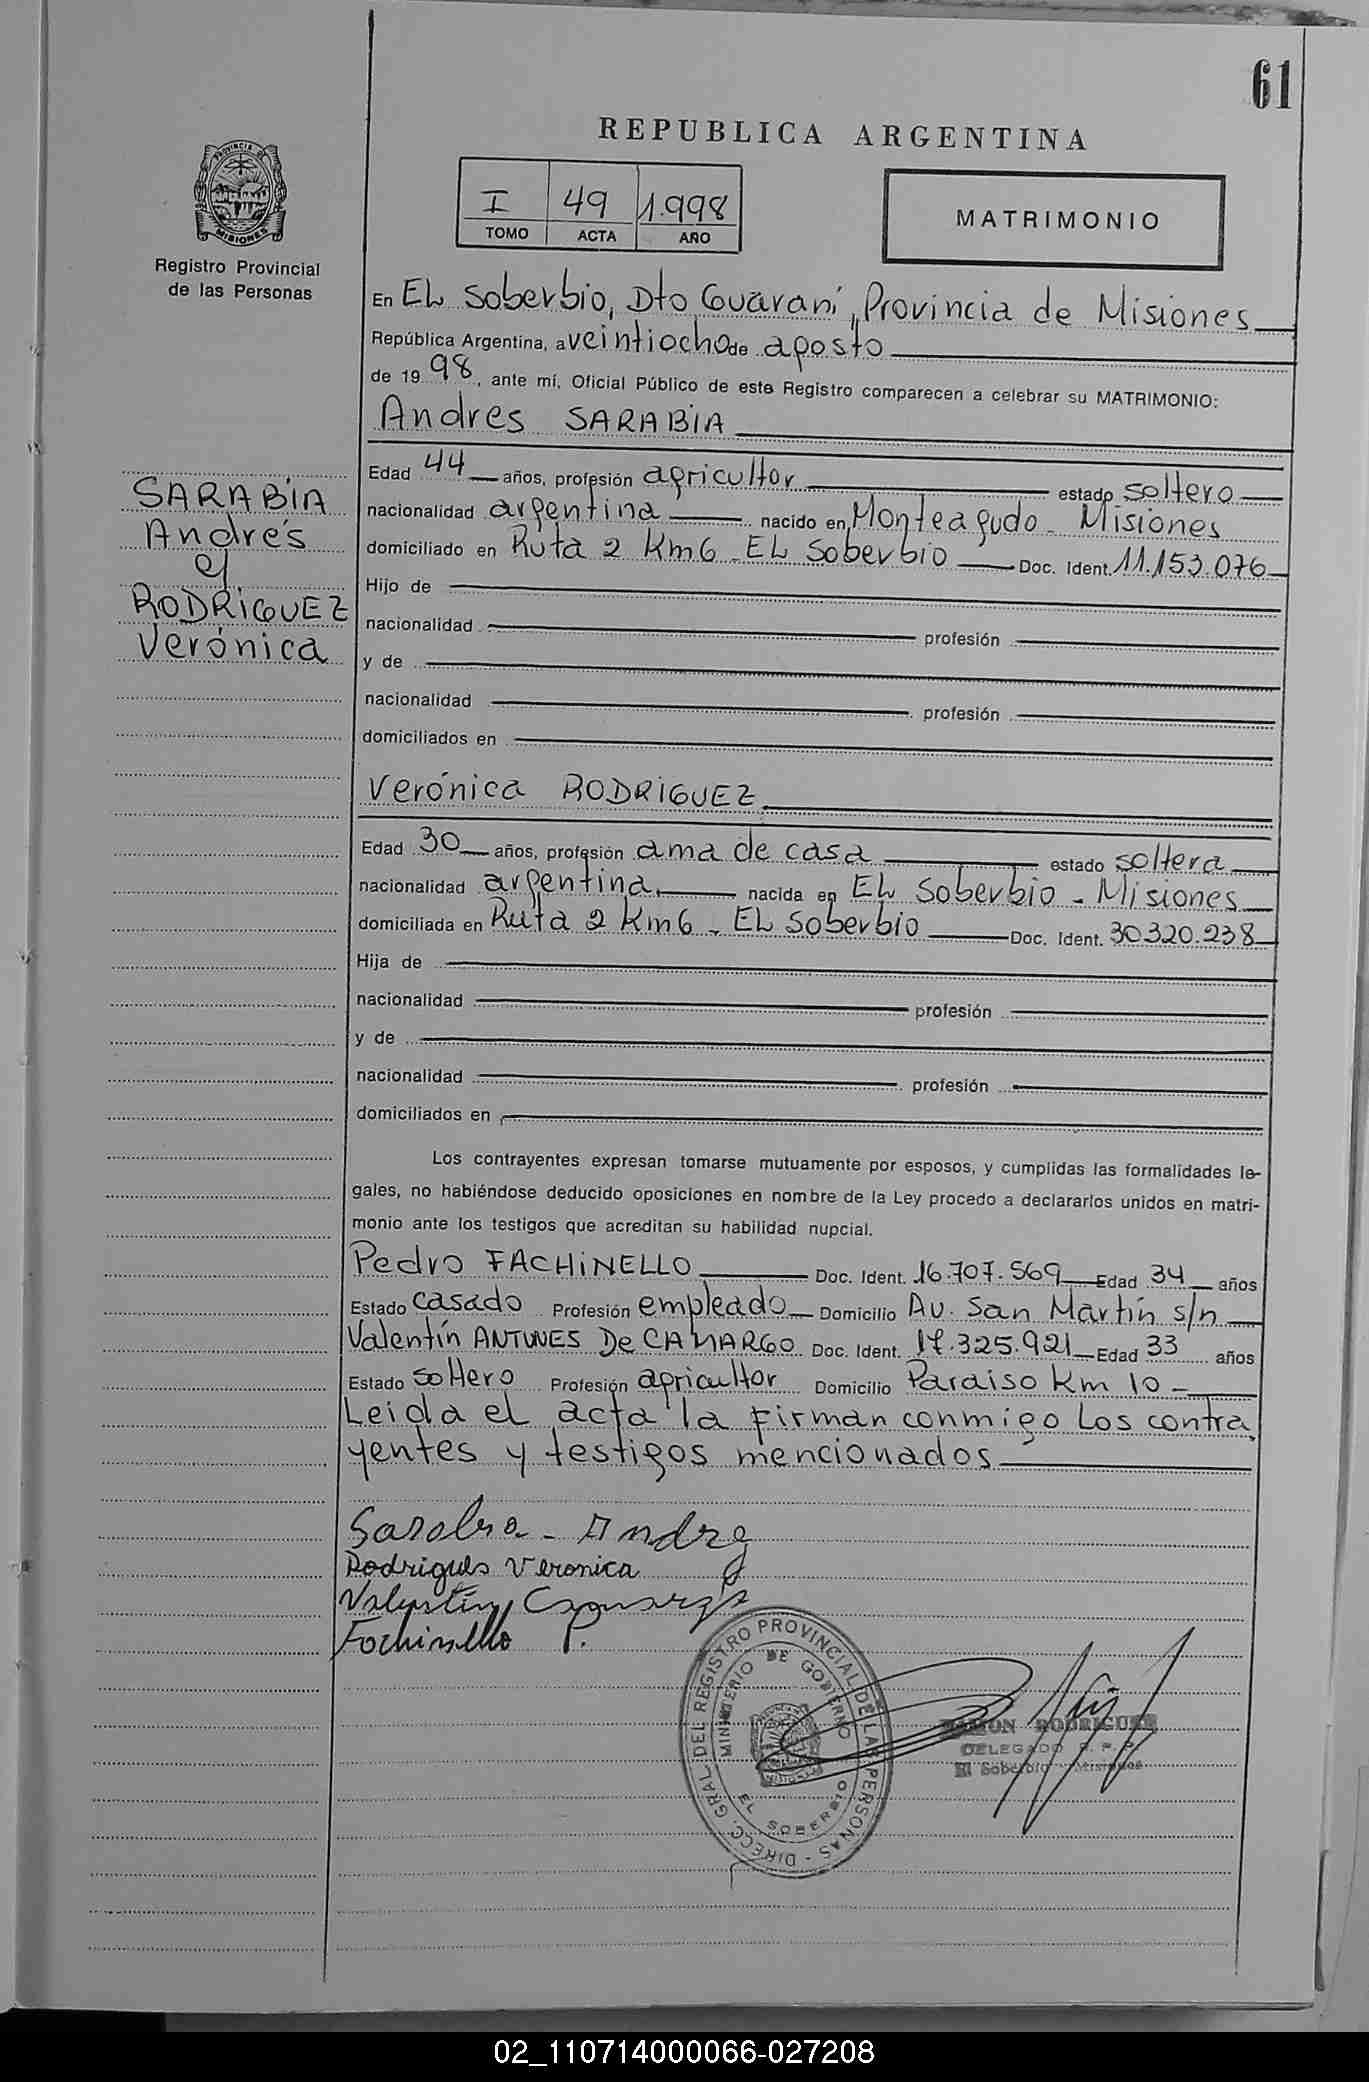 61
REPUBLICA ARGENTINA
PROVINCIA DE
MISIONES
Registro Provincial
de las Personas
I 49 1.998
TOMO ACTA AÑO
MATRIMONIO
En EL Soberbio, Dto Guaraní, Provincia de Misiones
República Argentina, a veintiocho de agosto
de 19 98, ante mí, Oficial Público de este Registro comparecen a celebrar su MATRIMONIO:
Andres SARABIA
Edad 44 años, profesión agricultor estado soltero
nacionalidad argentina nacido en Monteagudo - Misiones
domiciliado en Ruta 2 Km6 - EL Soberbio Doc. Ident. 11.153.076
Hijo de
nacionalidad profesión
y de
nacionalidad profesión
domiciliados en
SARABIA
Andrés
y
RODRIGUEZ
Verónica
Verónica RODRIGUEZ
Edad 30 años, profesión ama de casa estado soltera
nacionalidad argentina. nacida en EL Soberbio - Misiones
domiciliada en Ruta 2 Km6 - EL Soberbio Doc. Ident. 30320.238
Hija de
nacionalidad profesión
y de
nacionalidad profesión
domiciliados en
Los contrayentes expresan tomarse mutuamente por esposos, y cumplidas las formalidades le-
gales, no habiéndose deducido oposiciones en nombre de la Ley procedo a declararlos unidos en matri-
monio ante los testigos que acreditan su habilidad nupcial.
Pedro FACHINELLO Doc. Ident. 16.707.569 Edad 34 años
Estado casado Profesión empleado Domicilio Av. San Martín s/n
Valentín ANTUNES De CAMARGO Doc. Ident. 17.325.921 Edad 33 años
Estado soltero Profesión agricultor Domicilio Paraiso Km 10 -
Leida el acta la firman conmigo los contra
yentes y testigos mencionados
Sarabia - Andre
Rodrigues Veronica
Valentin Camargo
Fochinello P.
DIRECC. GRAL. DEL REGISTRO PROVINCIAL DE LAS PERSONAS -
MINISTERIO DE GOBIERNO
EL SOBERBIO
RAMON RODRIGUEZ
DELEGADO R. P. P.
El Soberbio - Misiones
02_110714000066-027208